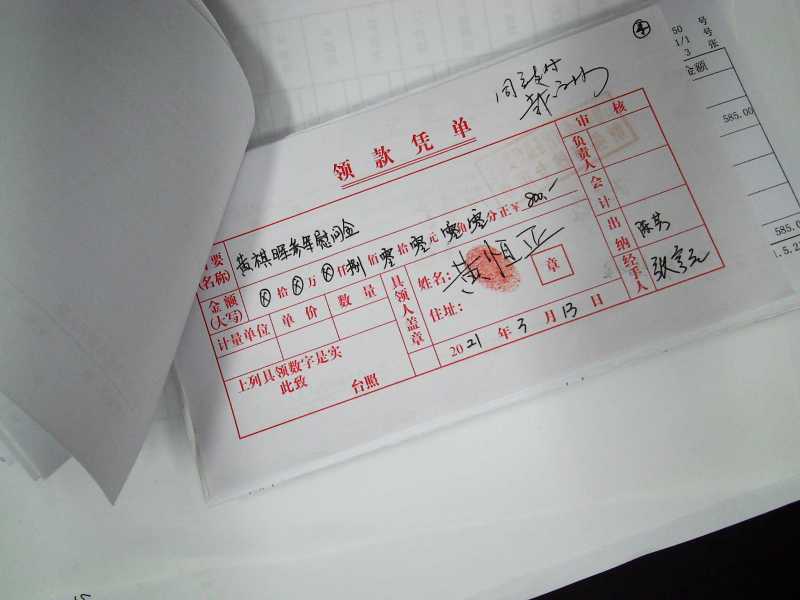 ④
50 号
1/1 号
3 张
金额
585.00
585.0
1.5.2
同意支付
领款凭单
审核
负责人
会计
出纳 陈芳
经手人
摘要(名称) 黄祺晖参军慰问金
金额(大写) ⊗拾⊗万⊗仟捌佰零拾零元零角零分正¥800.-
计量单位 单价 数量
具领人盖章
姓名: 黄恒亚 章
住址:
上列具领数字是实
此致 台照
2021年3月13日